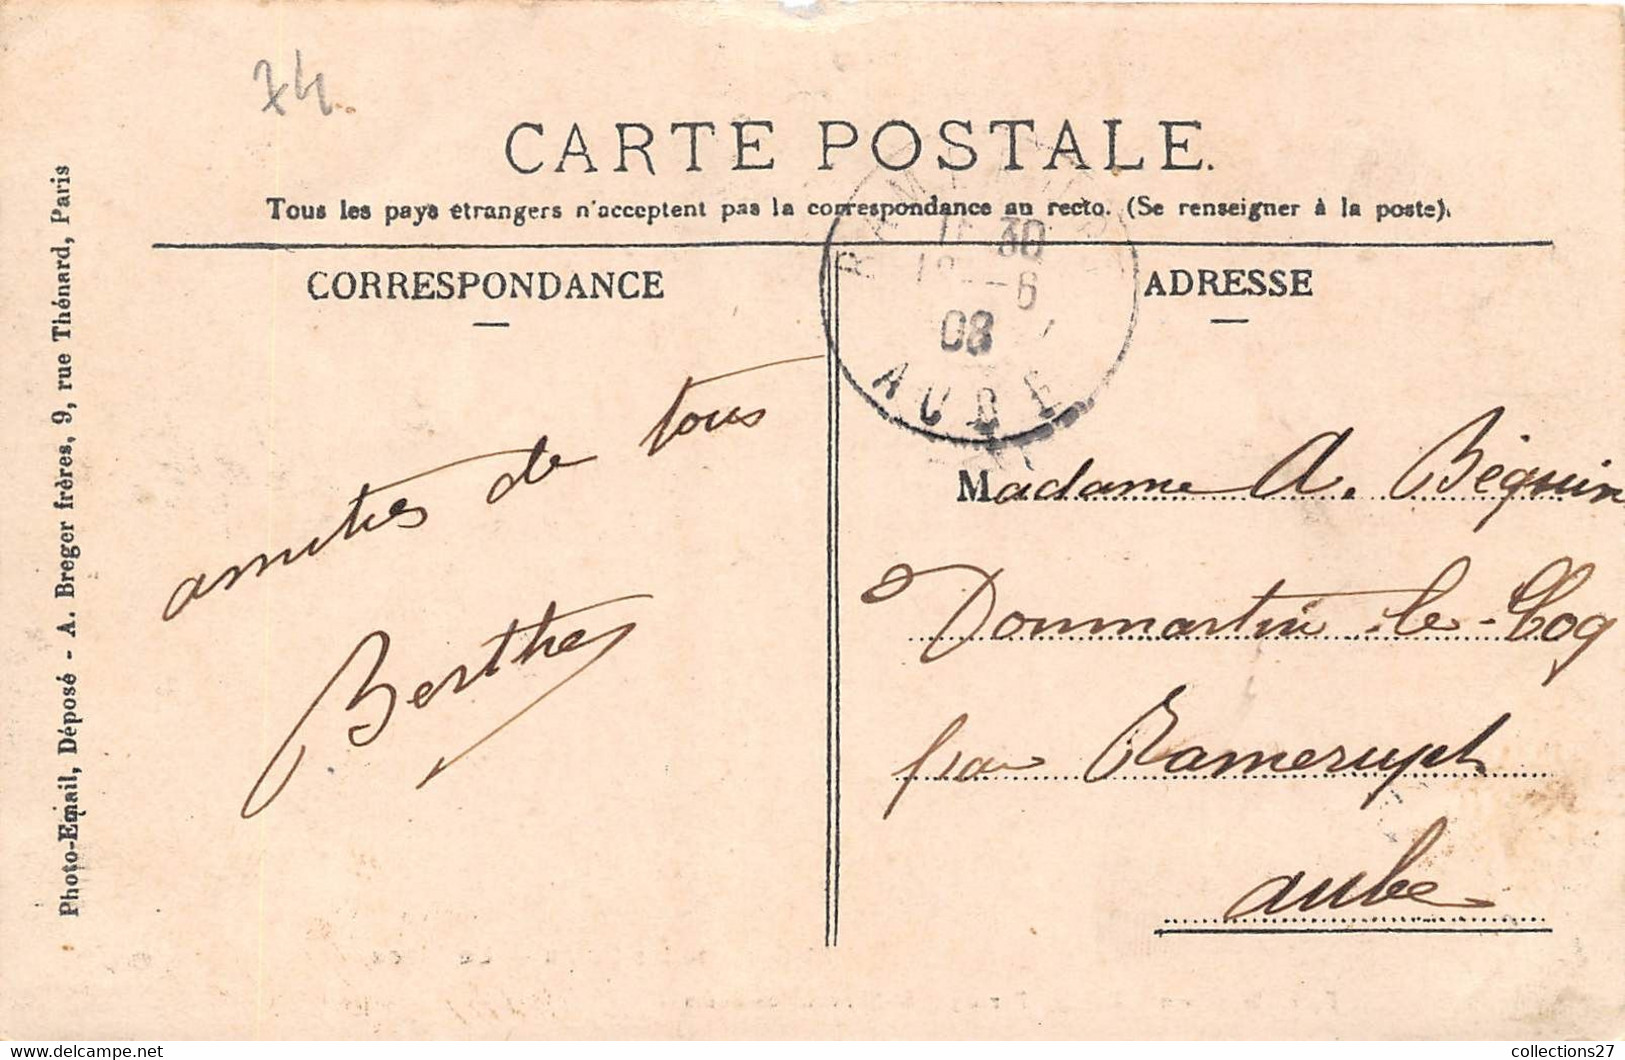 74
CARTE POSTALE.
Tous les pays étrangers n'acceptent pas la correspondance au recto. (Se renseigner à la poste).
CORRESPONDANCE
amitiés de tous
Berthe
ADRESSE
30
6
08
AUBE
Madame A. Béguin
Dommartin-le-Coq
par Ramerupt
aube
Photo-Email, Déposé - A. Breger frères, 9, rue Thénard, Paris
collections27